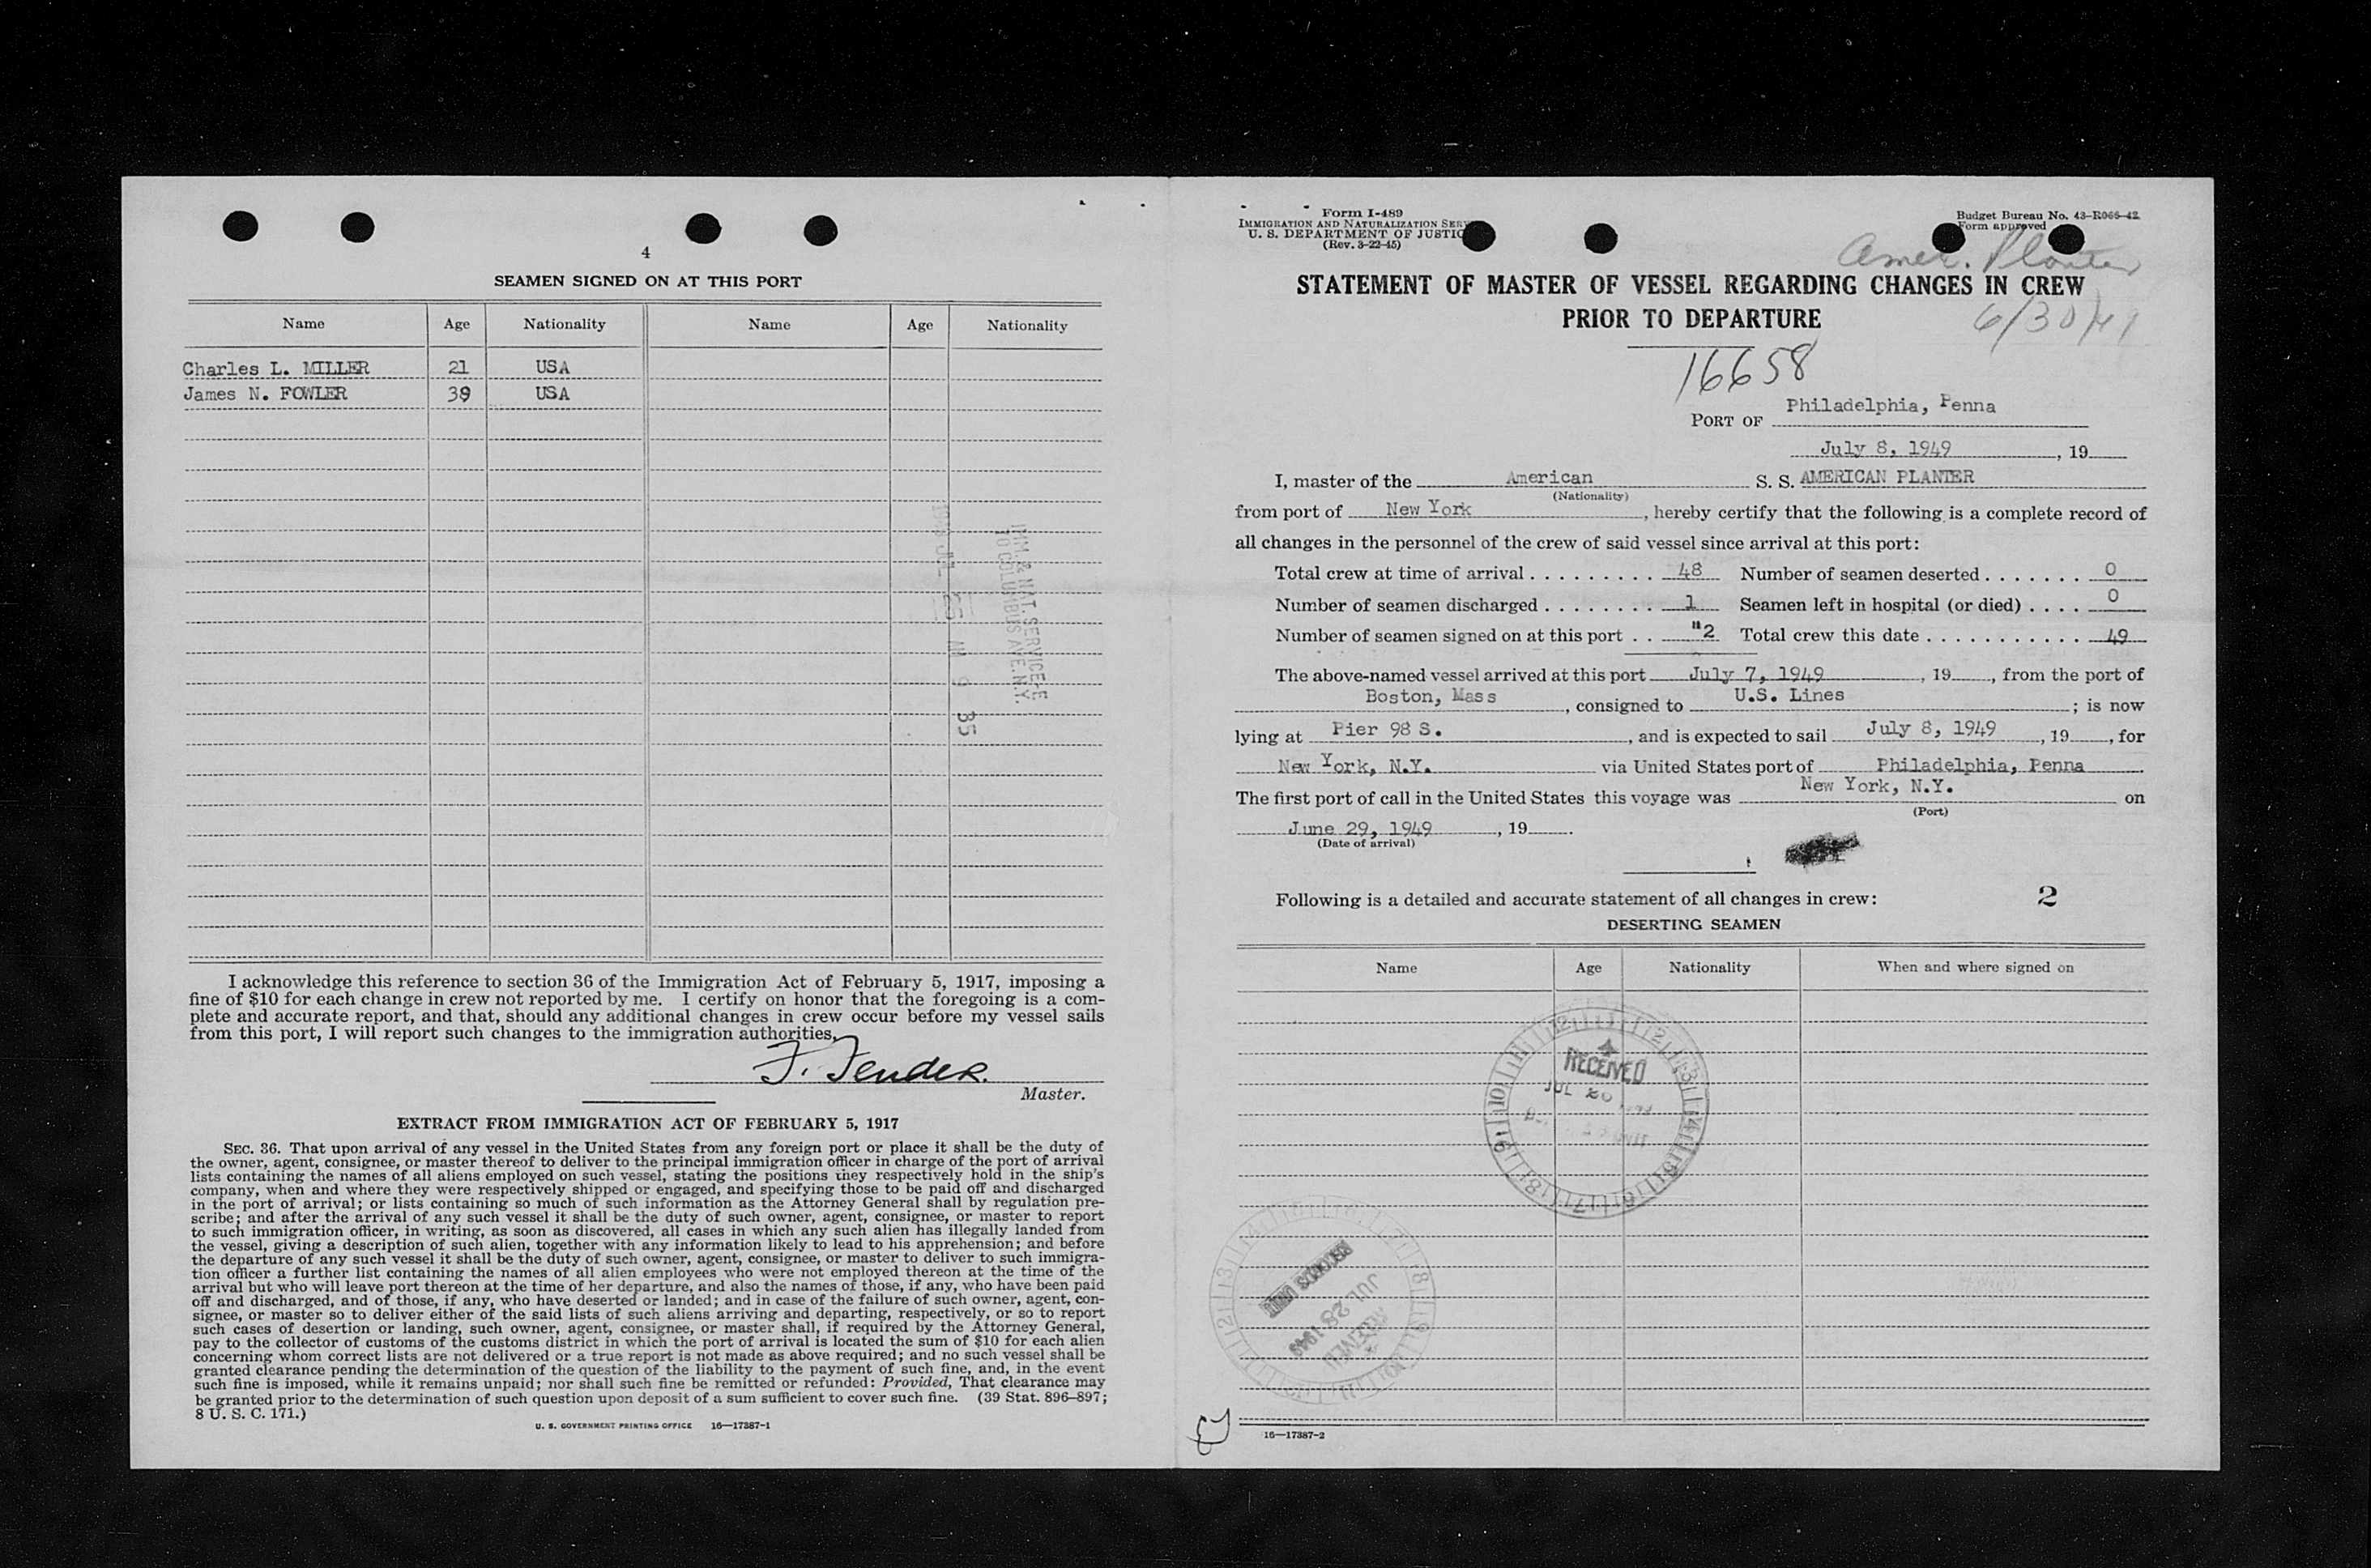 4
SEAMEN SIGNED ON AT THIS PORT
Name Age Nationality Name Age Nationality
Charles L. MILLER 21 USA
James N. FOWLER 39 USA
IMM. & NAT. SERVICE-E
TO COLUMBUS AVE. N.Y.
AM 9 35
I acknowledge this reference to section 36 of the Immigration Act of February 5, 1917, imposing a
fine of $10 for each change in crew not reported by me. I certify on honor that the foregoing is a com-
plete and accurate report, and that, should any additional changes in crew occur before my vessel sails
from this port, I will report such changes to the immigration authorities.
F. Fender.
Master.
EXTRACT FROM IMMIGRATION ACT OF FEBRUARY 5, 1917
SEC. 36. That upon arrival of any vessel in the United States from any foreign port or place it shall be the duty of
the owner, agent, consignee, or master thereof to deliver to the principal immigration officer in charge of the port of arrival
lists containing the names of all aliens employed on such vessel, stating the positions they respectively hold in the ship's
company, when and where they were respectively shipped or engaged, and specifying those to be paid off and discharged
in the port of arrival; or lists containing so much of such information as the Attorney General shall by regulation pre-
scribe; and after the arrival of any such vessel it shall be the duty of such owner, agent, consignee, or master to report
to such immigration officer, in writing, as soon as discovered, all cases in which any such alien has illegally landed from
the vessel, giving a description of such alien, together with any information likely to lead to his apprehension; and before
the departure of any such vessel it shall be the duty of such owner, agent, consignee, or master to deliver to such immigra-
tion officer a further list containing the names of all alien employees who were not employed thereon at the time of the
arrival but who will leave port thereon at the time of her departure, and also the names of those, if any, who have been paid
off and discharged, and of those, if any, who have deserted or landed; and in case of the failure of such owner, agent, con-
signee, or master so to deliver either of the said lists of such aliens arriving and departing, respectively, or so to report
such cases of desertion or landing, such owner, agent, consignee, or master shall, if required by the Attorney General,
pay to the collector of customs of the customs district in which the port of arrival is located the sum of $10 for each alien
concerning whom correct lists are not delivered or a true report is not made as above required; and no such vessel shall be
granted clearance pending the determination of the question of the liability to the payment of such fine, and, in the event
such fine is imposed, while it remains unpaid; nor shall such fine be remitted or refunded: Provided, That clearance may
be granted prior to the determination of such question upon deposit of a sum sufficient to cover such fine. (39 Stat. 896–897;
8 U. S. C. 171.)
U. S. GOVERNMENT PRINTING OFFICE 16—17387-1
Form I-489
IMMIGRATION AND NATURALIZATION SERV
U. S. DEPARTMENT OF JUSTIC
(Rev. 3-22-45)
Budget Bureau No. 43-R066-42
Form approved
Amer. Planter
STATEMENT OF MASTER OF VESSEL REGARDING CHANGES IN CREW
PRIOR TO DEPARTURE
6/30/49
16658
PORT OF Philadelphia, Penna
July 8, 1949, 19
I, master of the American S. S. AMERICAN PLANTER
(Nationality)
from port of New York, hereby certify that the following is a complete record of
all changes in the personnel of the crew of said vessel since arrival at this port:
Total crew at time of arrival . . . . . . . . . 48 Number of seamen deserted . . . . . . . 0
Number of seamen discharged . . . . . . . . 1 Seamen left in hospital (or died) . . . . 0
Number of seamen signed on at this port . . "2 Total crew this date . . . . . . . . . . . . 49
The above-named vessel arrived at this port July 7, 1949, 19, from the port of
Boston, Mass, consigned to U.S. Lines; is now
lying at Pier 98 S., and is expected to sail July 8, 1949, 19, for
New York, N.Y. via United States port of Philadelphia, Penna
The first port of call in the United States this voyage was New York, N.Y. on
(Port)
June 29, 1949, 19.
(Date of arrival)
Following is a detailed and accurate statement of all changes in crew: 2
DESERTING SEAMEN
Name Age Nationality When and where signed on
RECEIVED
JUL
RECORDS UNIT
JUL 28 1949
RECEIVED
16—17387-2